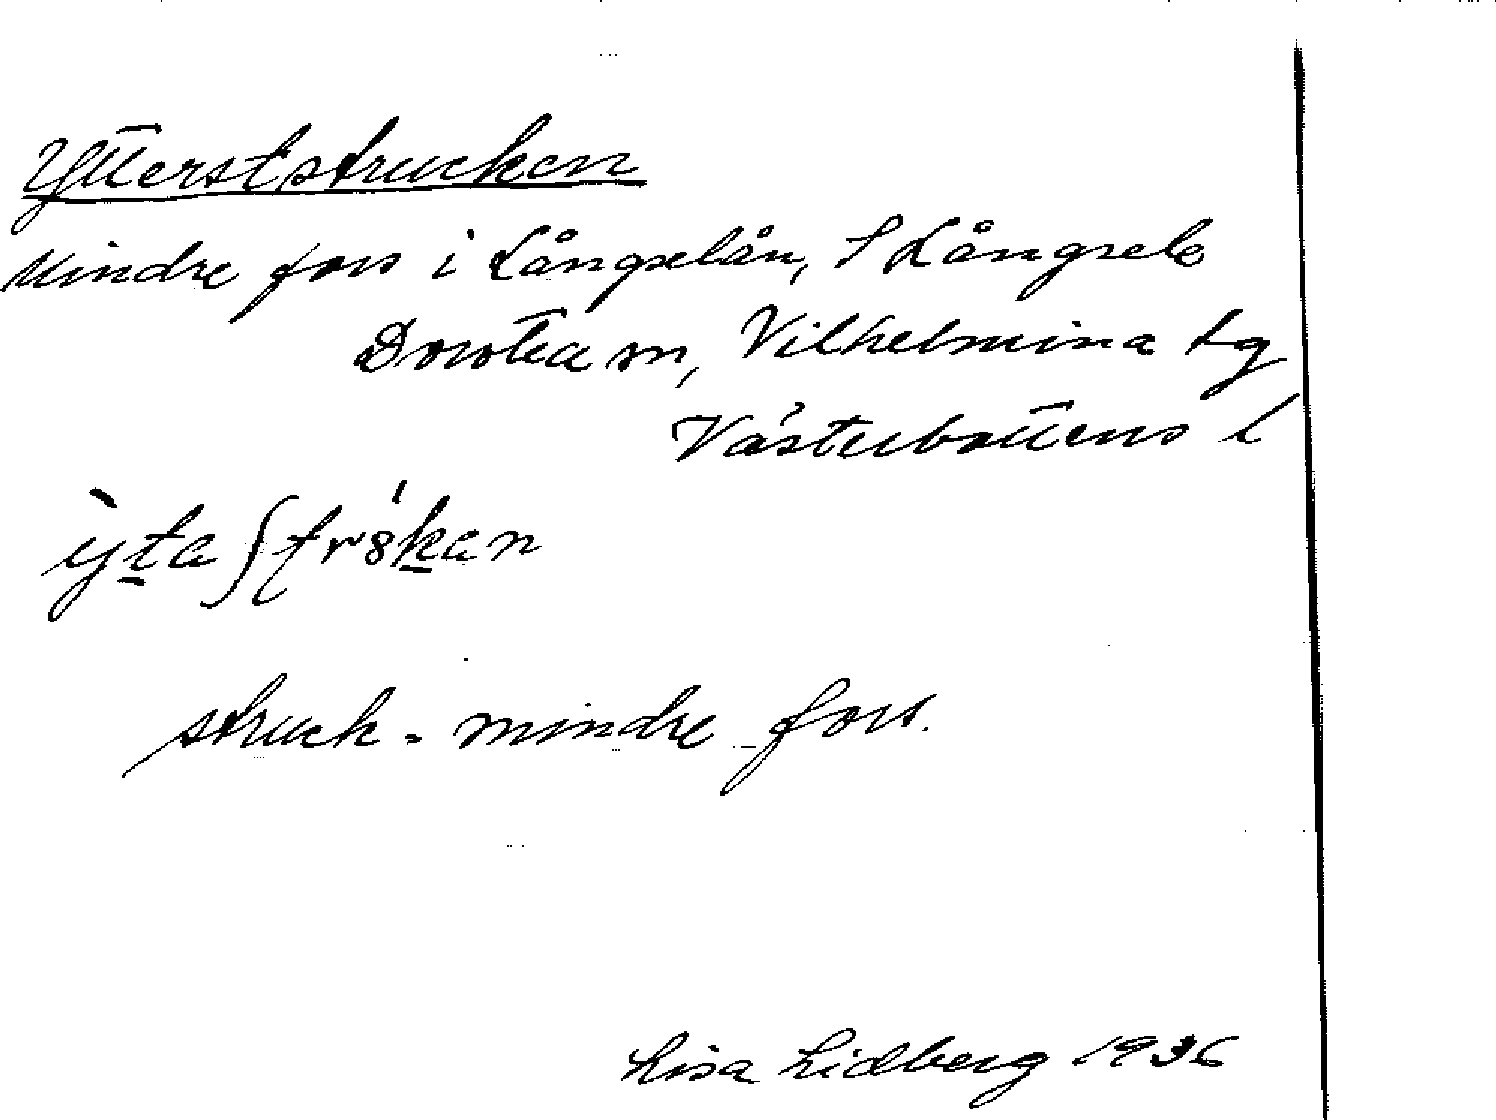 Ytterststrucken
Mindre fors i Långselån, S Långsele
Dorotea sn, Vilhelmina tg
Västerbottens l
ỳta ʃtrȣ́kan
struck = mindre fors.
Lisa Lidberg 1936